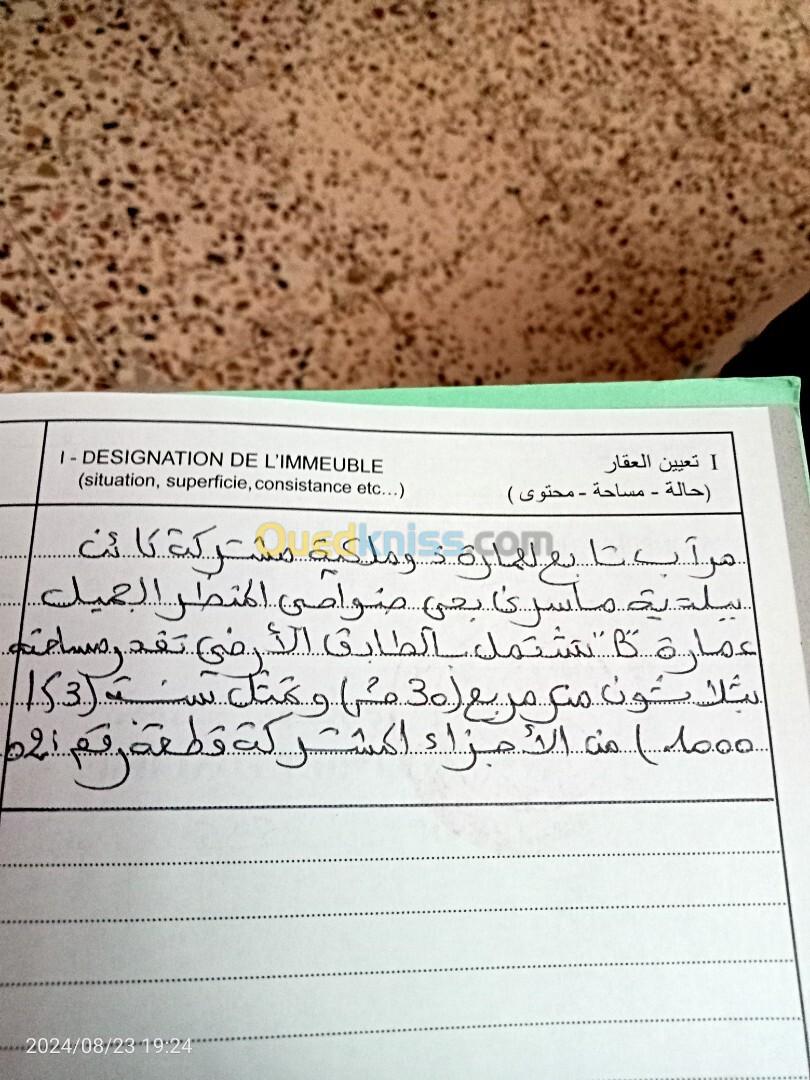 I - DESIGNATION DE L'IMMEUBLE
(situation, superficie, consistance etc...)
I تعيين العقار
(حالة - مساحة - محتوى)
Ouedkniss.com
مرآب تابع لعمارة ذو ملكية مشتركة كائن
ببلدية ماسرى بحي ضواحي المنظر الجميل
عمارة "تشتمل بالطابق الأرضي تقدر مساحته
بثلاثون متر مربع (30 م²) وتمثل نسبة (53/
1000) من الأجزاء المشتركة قطعة رقم: 02
2024/08/23 19:24